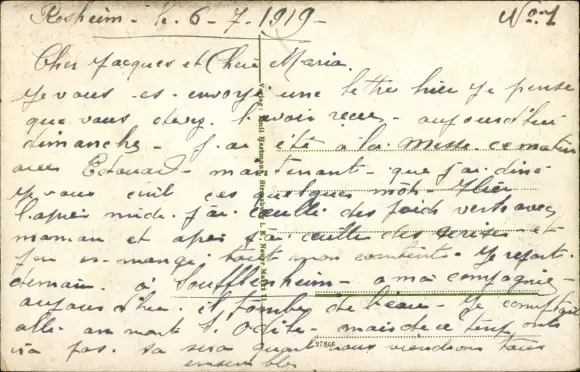 Rosheim - le 6 - 7 - 1919 - No. 1
Cher Jacques et Chère Maria.
Je vous es envoyé une lettre hier je pense
que vous devez l'avoir reçu - aujourd'hui
dimanche - j'ai été à la Messe ce matin
avec Edouard - maintenant - que j'ai diné
je vous ecrit ces quelques mots - Hier
l'après midi j'ai ceuilli des poids verts avec
maman et après j'ai ceuilli des cerises - et
j'en es mangé tout mon contente - Je repart
demain à Soufflenheim - a ma compagnie -
aujourd'hui il tombe de l'eau - Je comptais
aller au mont St. Odile - mais de ce temp
va pas. sa sera quant nous viendrons tous
ensembles
Verlag: Emil Hartmann, Strassburg
27866